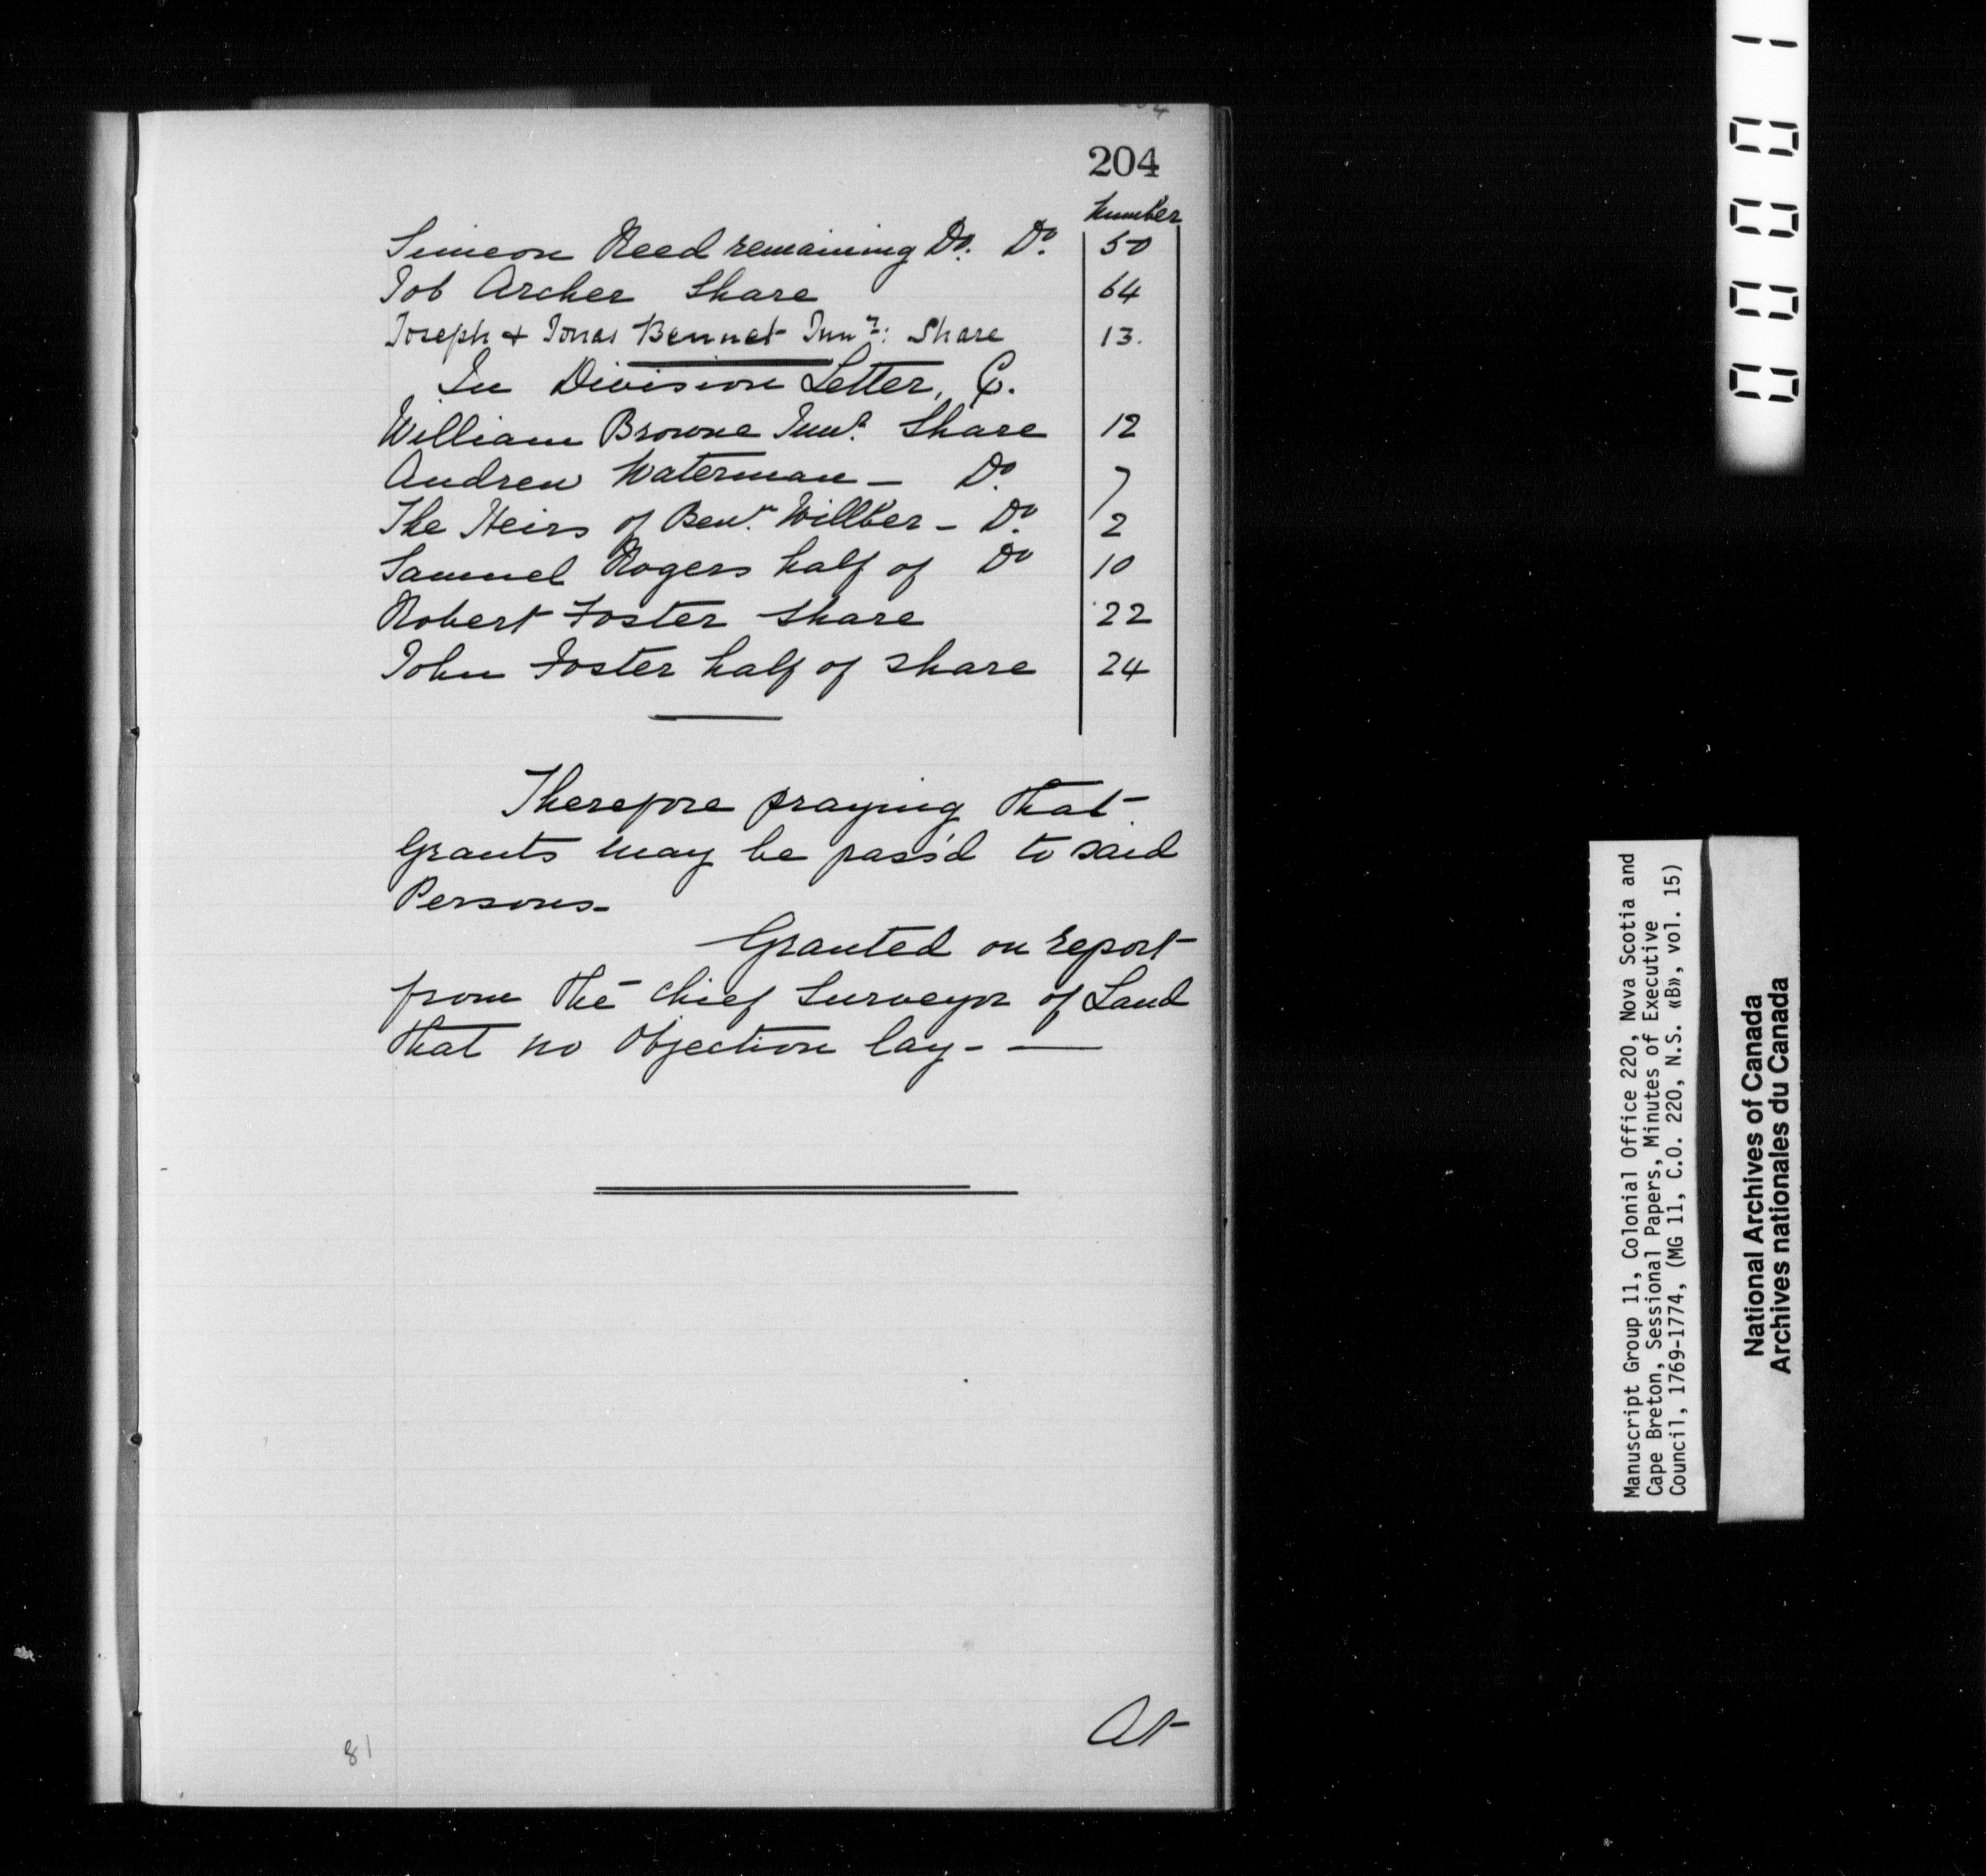 204
Number
Simeon Reed remaining Do. Do. 50
Job Archer Share 64
Joseph & Jonas Bennet Junr: Share 13.
In Division Letter, C.
William Browne Junr. Share 12
Andrew Waterman - Do. 7
The Heirs of Benj. Willber - Do. 2
Samuel Rogers half of Do 10
Robert Foster share 22
John Foster half of share 24
Therefore praying that
Grants may be pass'd to said
Persons-
Granted on report
from the chief Surveyor of Land
that no Objection lay-
At
81
00001
Manuscript Group 11, Colonial Office 220, Nova Scotia and
Cape Breton, Sessional Papers, Minutes of Executive
Council, 1769-1774, (MG 11, C.O. 220, N.S. «B», vol. 15)
National Archives of Canada
Archives nationales du Canada